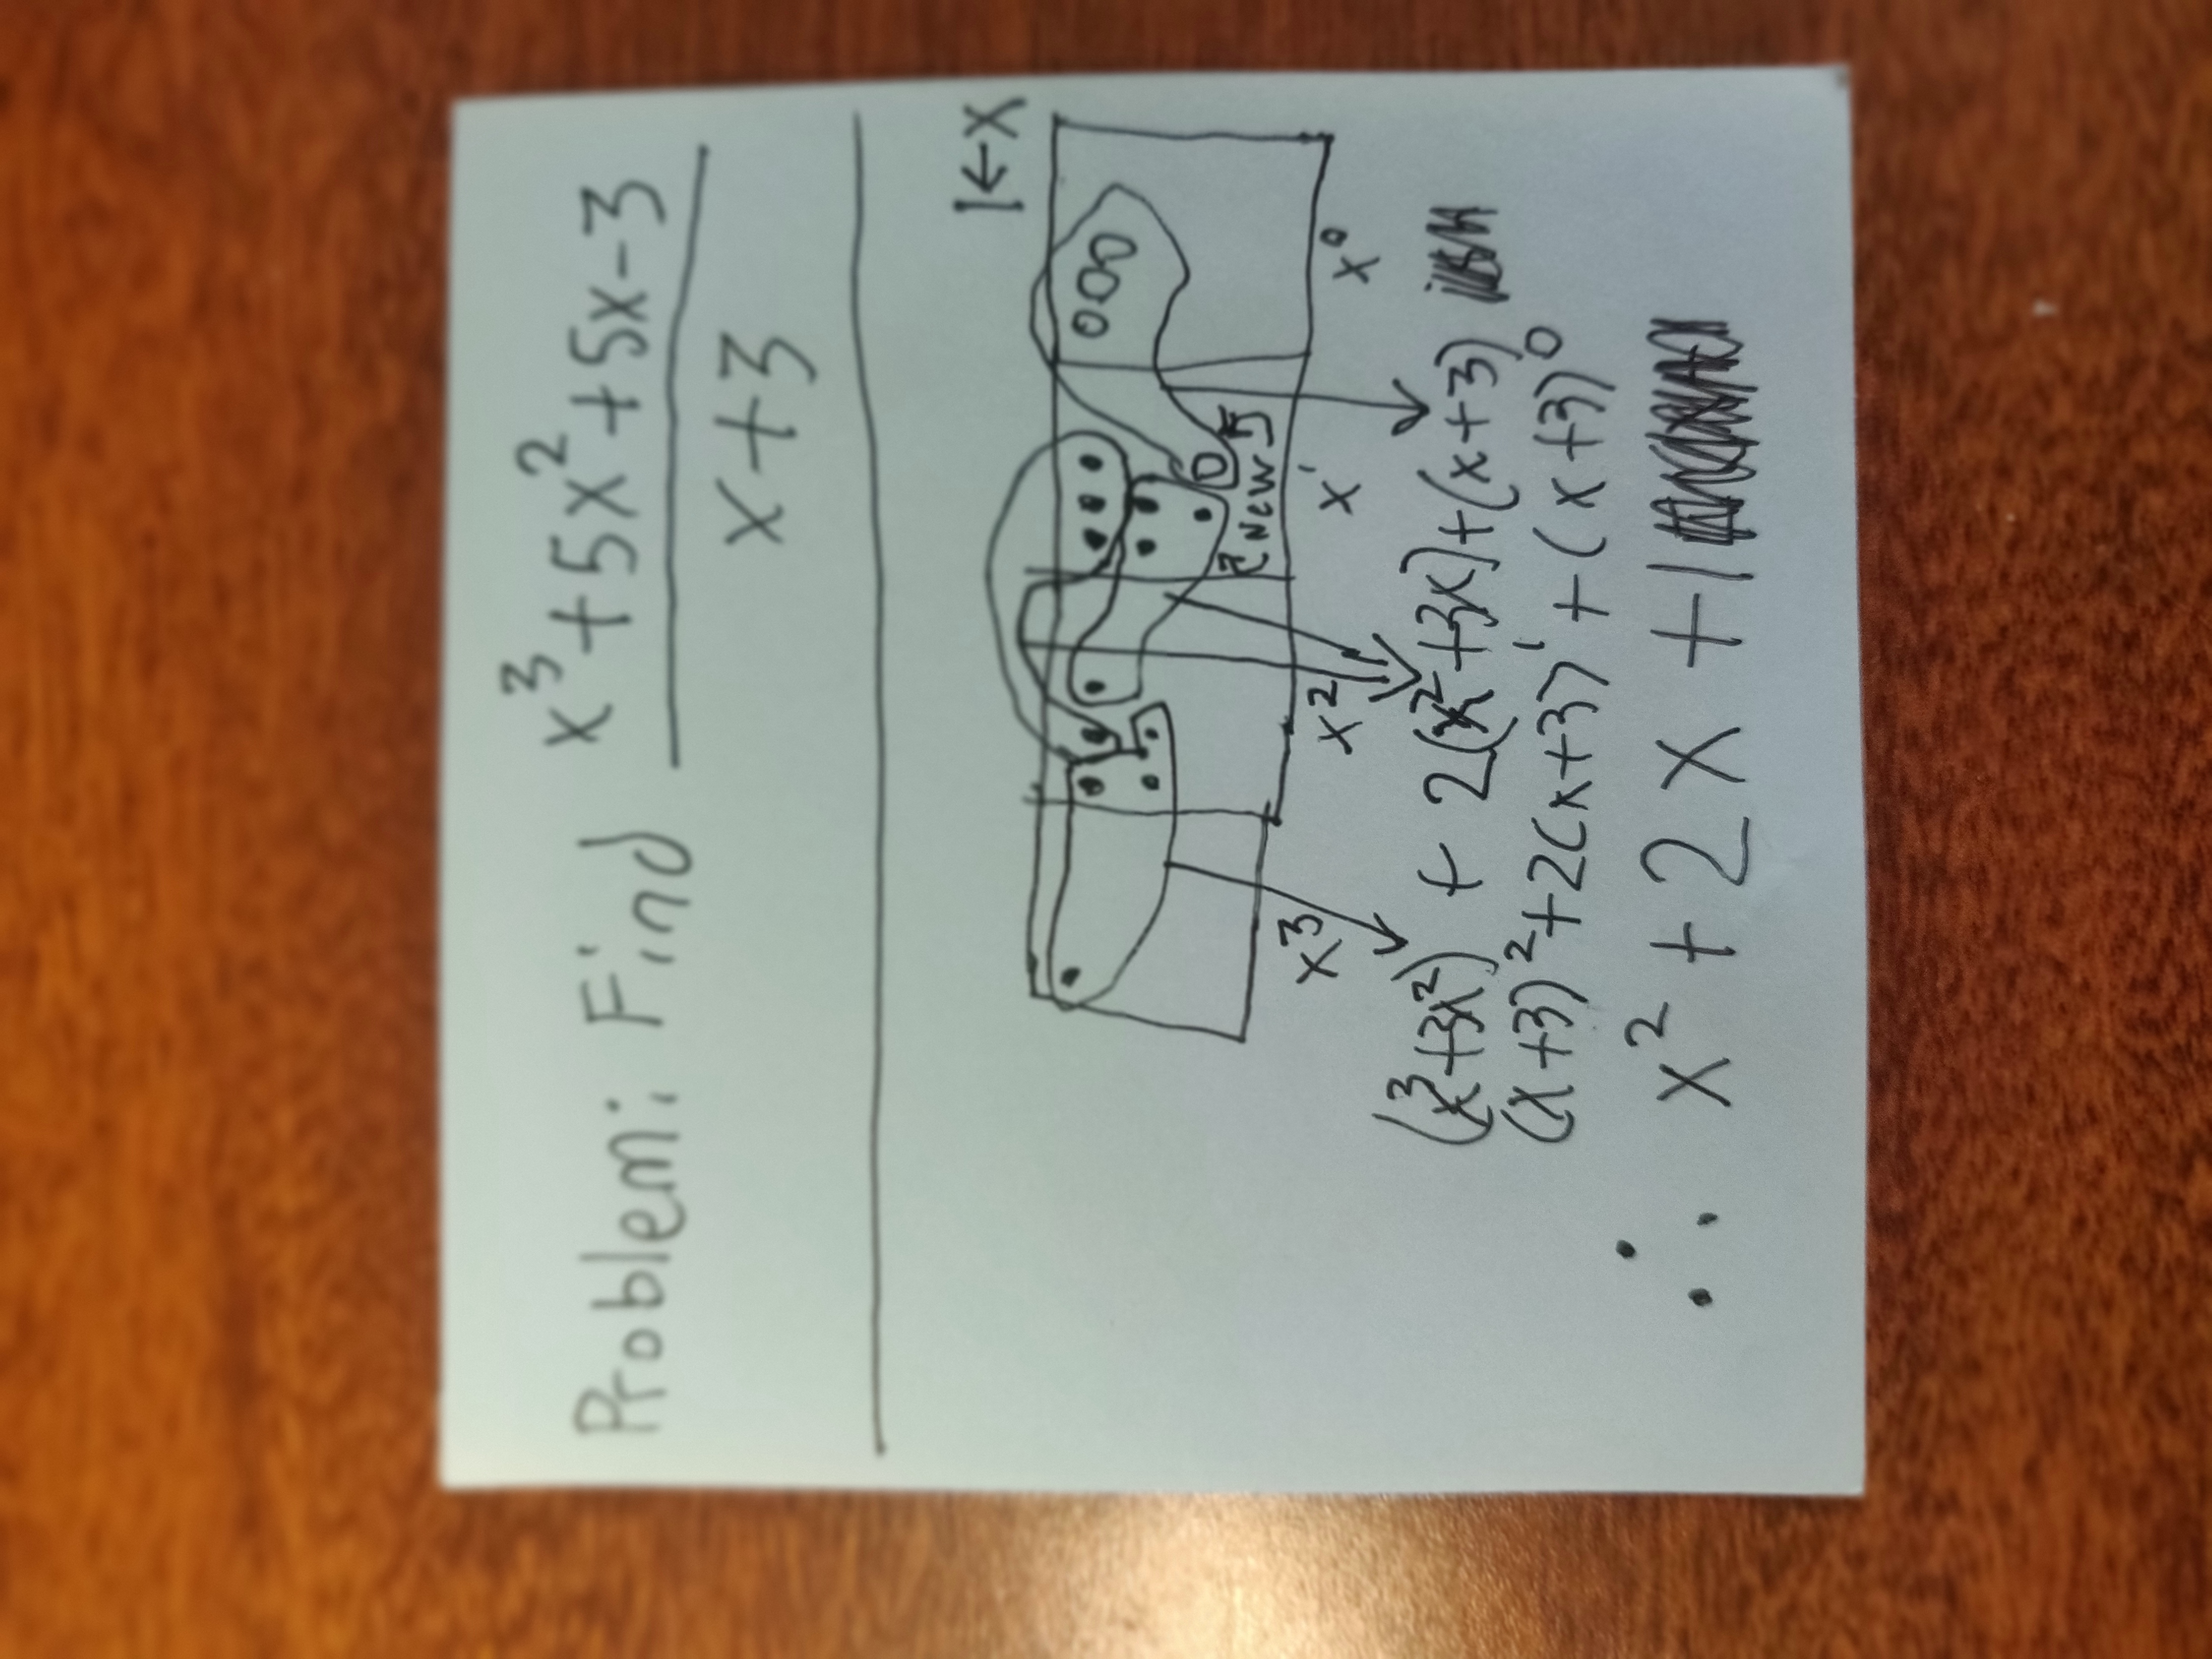 Problem: Find x³+5x²+5x-3
x+3
1←x
[New]
x³ x² x¹ x⁰
(x³+3x²) + 2(x²+3x)+(x+3)
(x+3)²+2(x+3)¹+(x+3)⁰
∴ x²+2x+1